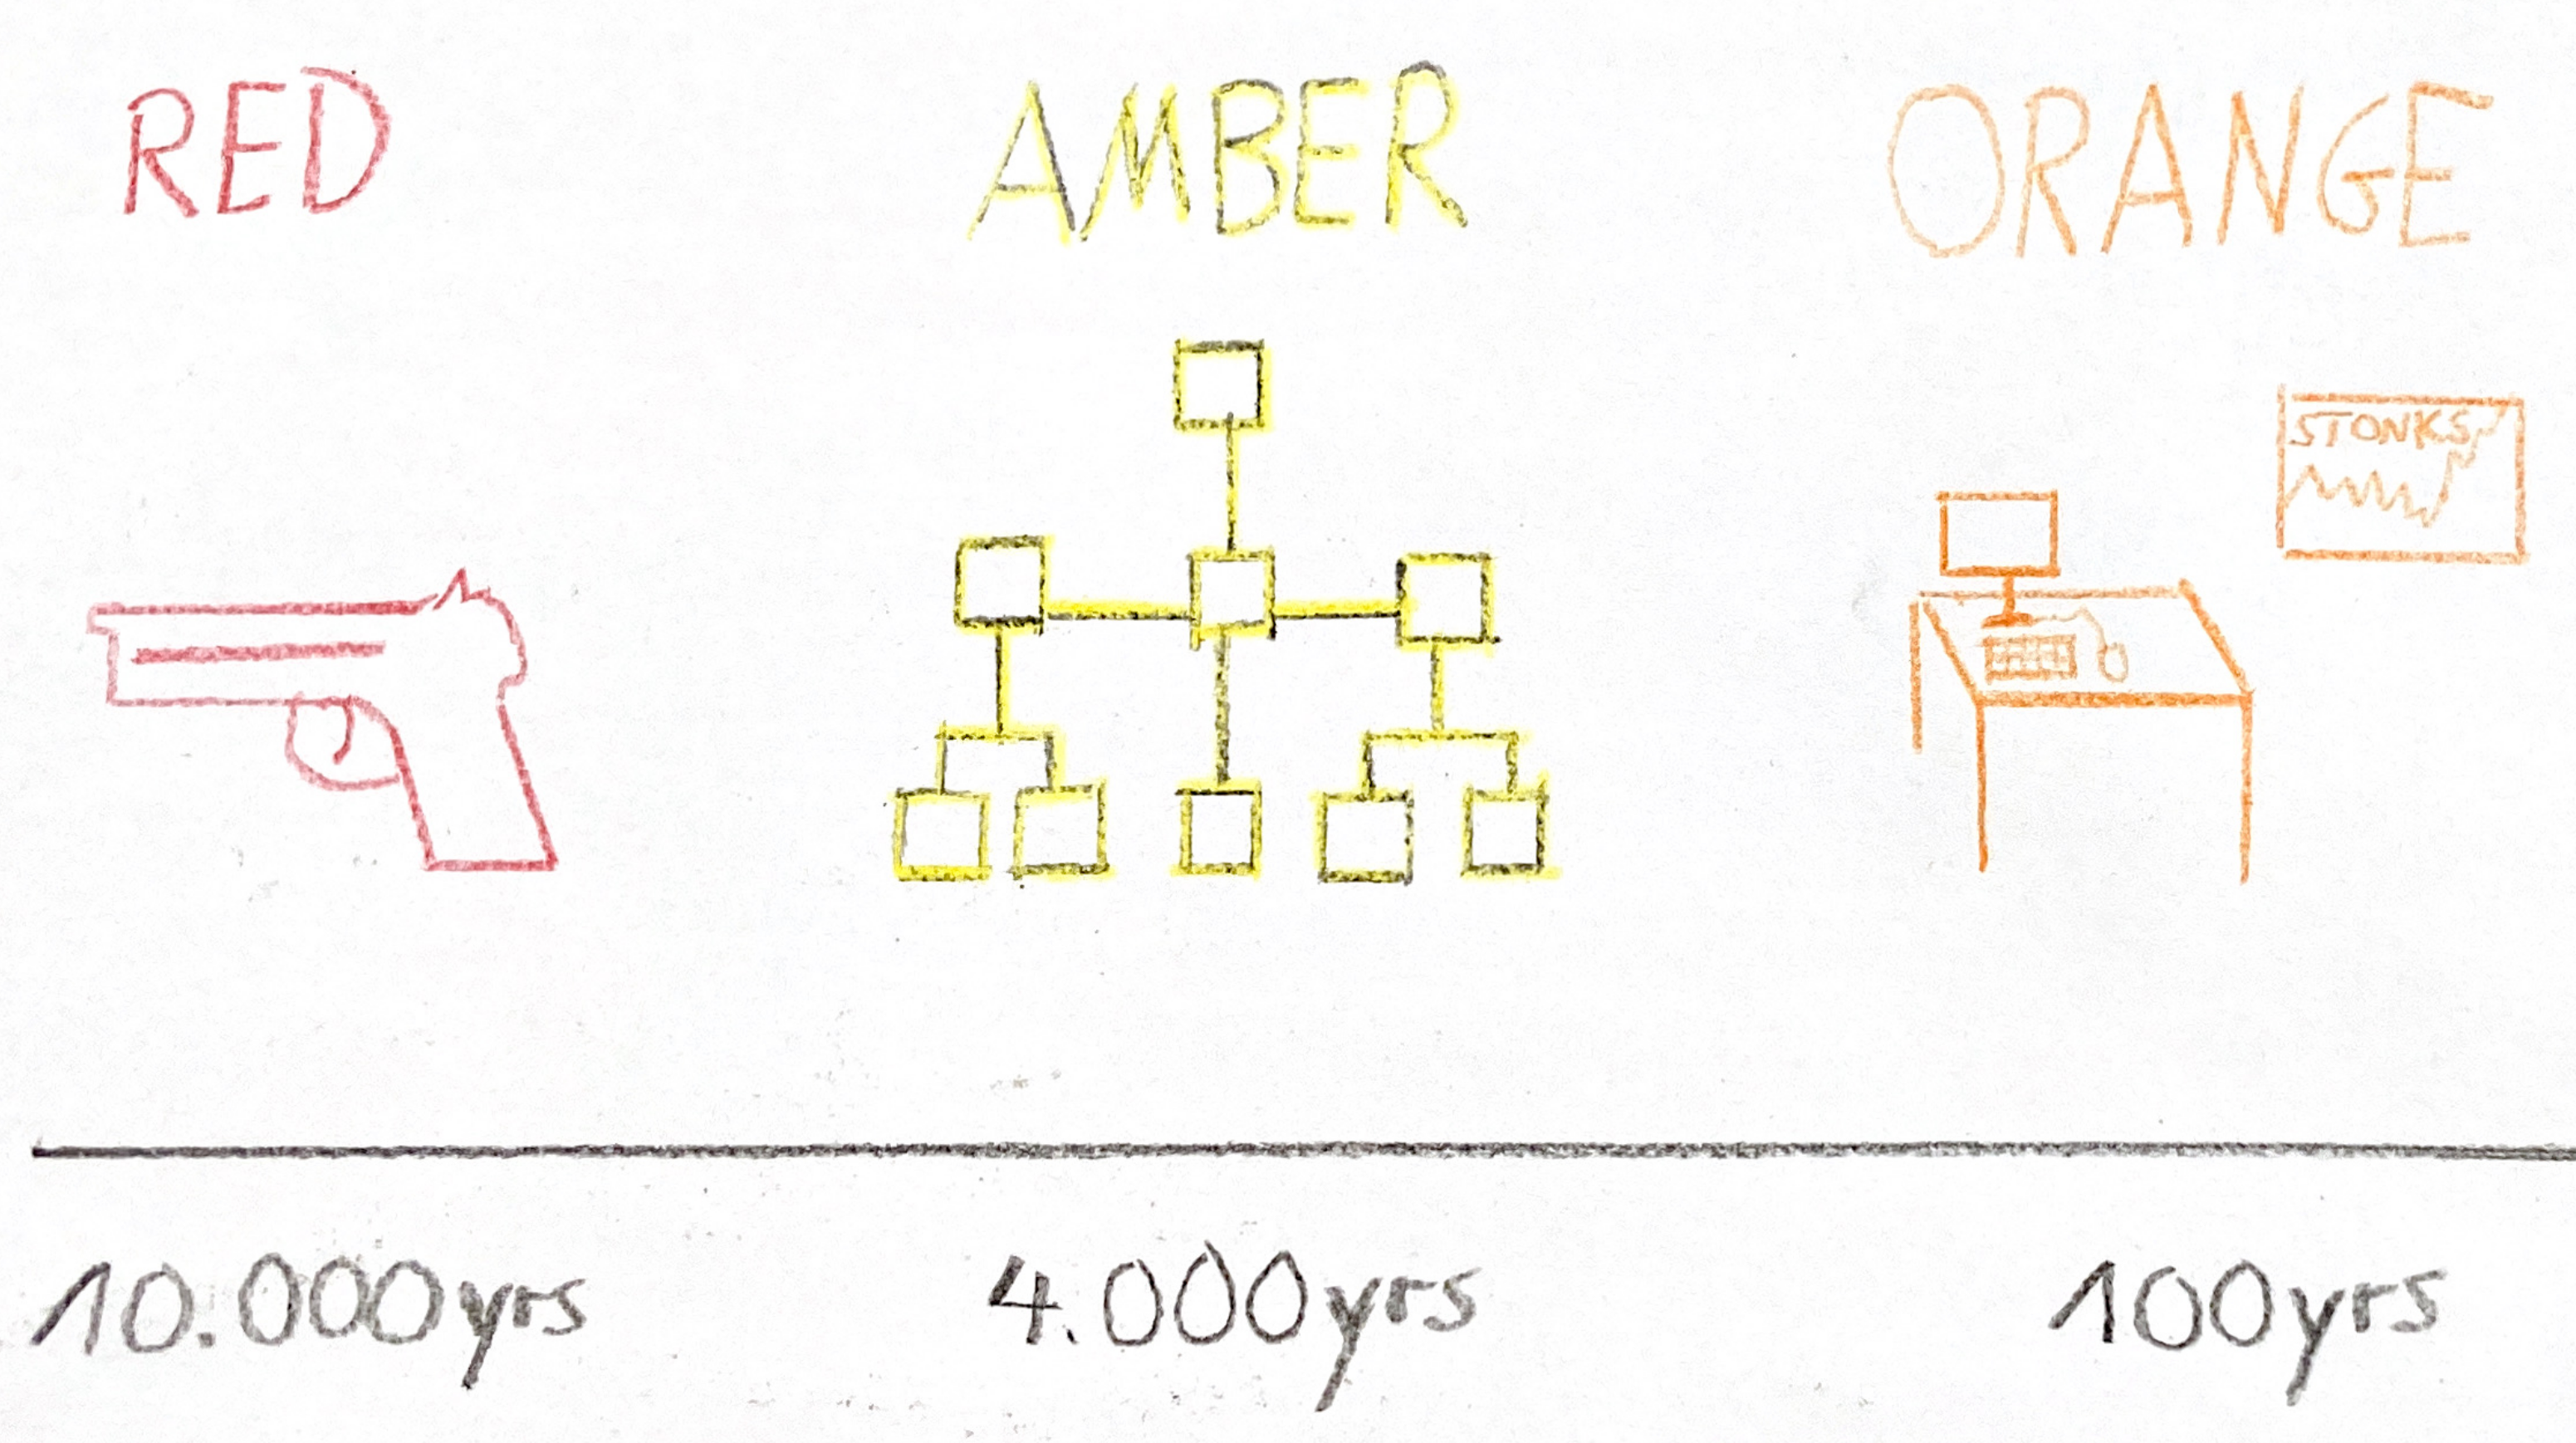 RED AMBER ORANGE
STONKS
10.000yrs 4.000yrs 100yrs